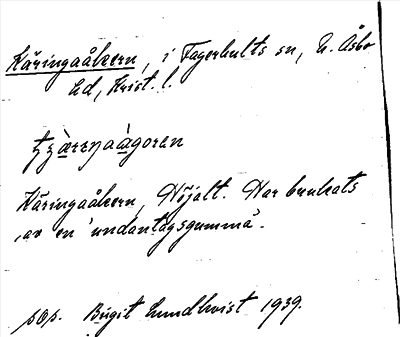 Käringaåkern, i Fagerhults sn, N. Åsbo
hd, Krist. l.
Käringaåkern, Höjalt. Har brukats
av en 'undantagsgumma'.
pop. Birgit Lundkvist 1939.